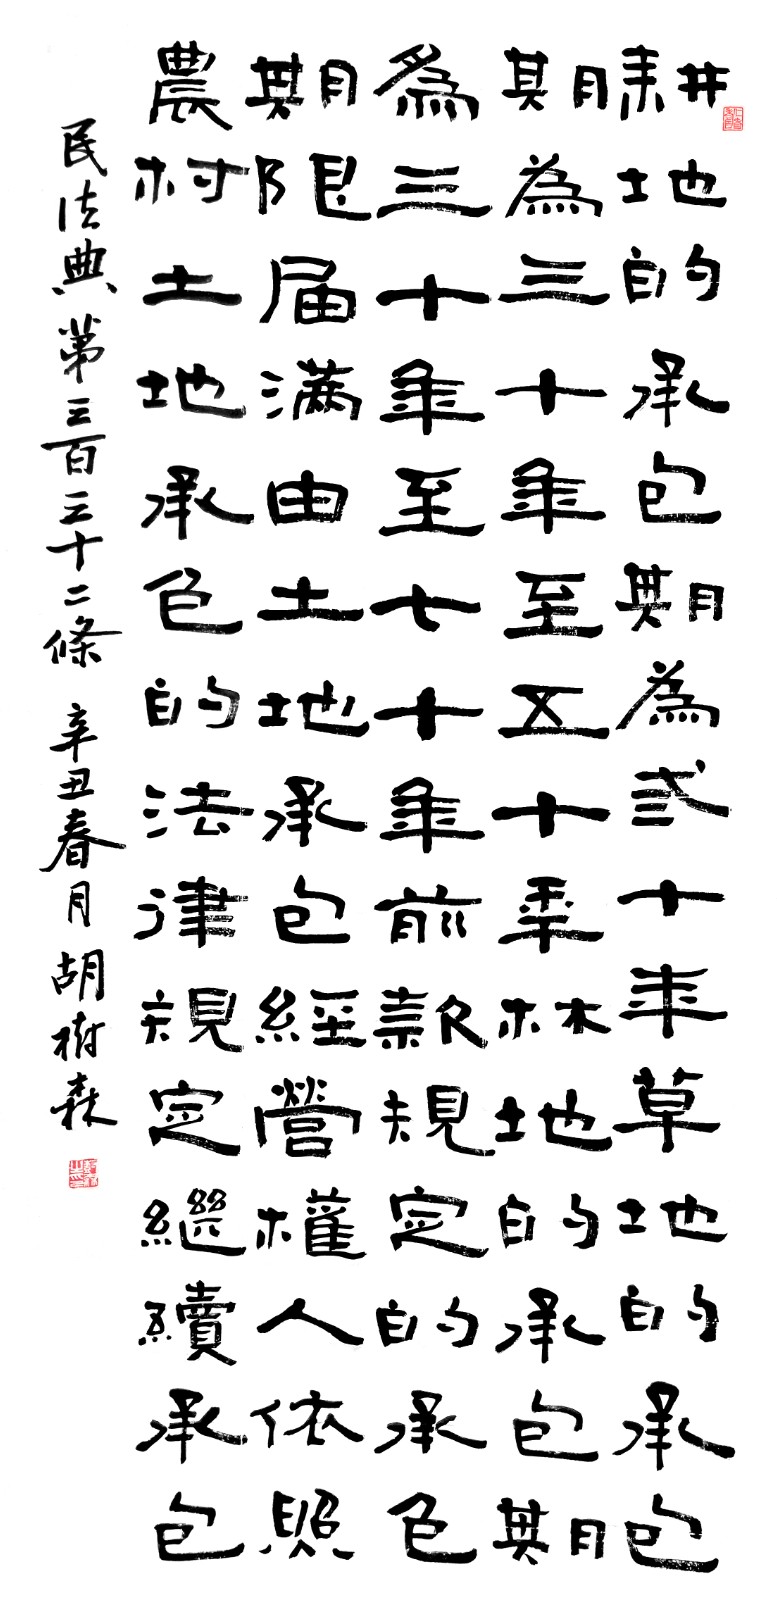 耕地的承包期為弍十年草地的承包
期為三十年至五十年林地的承包期
為三十年至七十年前款規定的承包
期限届满由土地承包經營權人依照
農村土地承包的法律規定繼續承包
民法典第三百三十二條 辛丑春月胡樹森